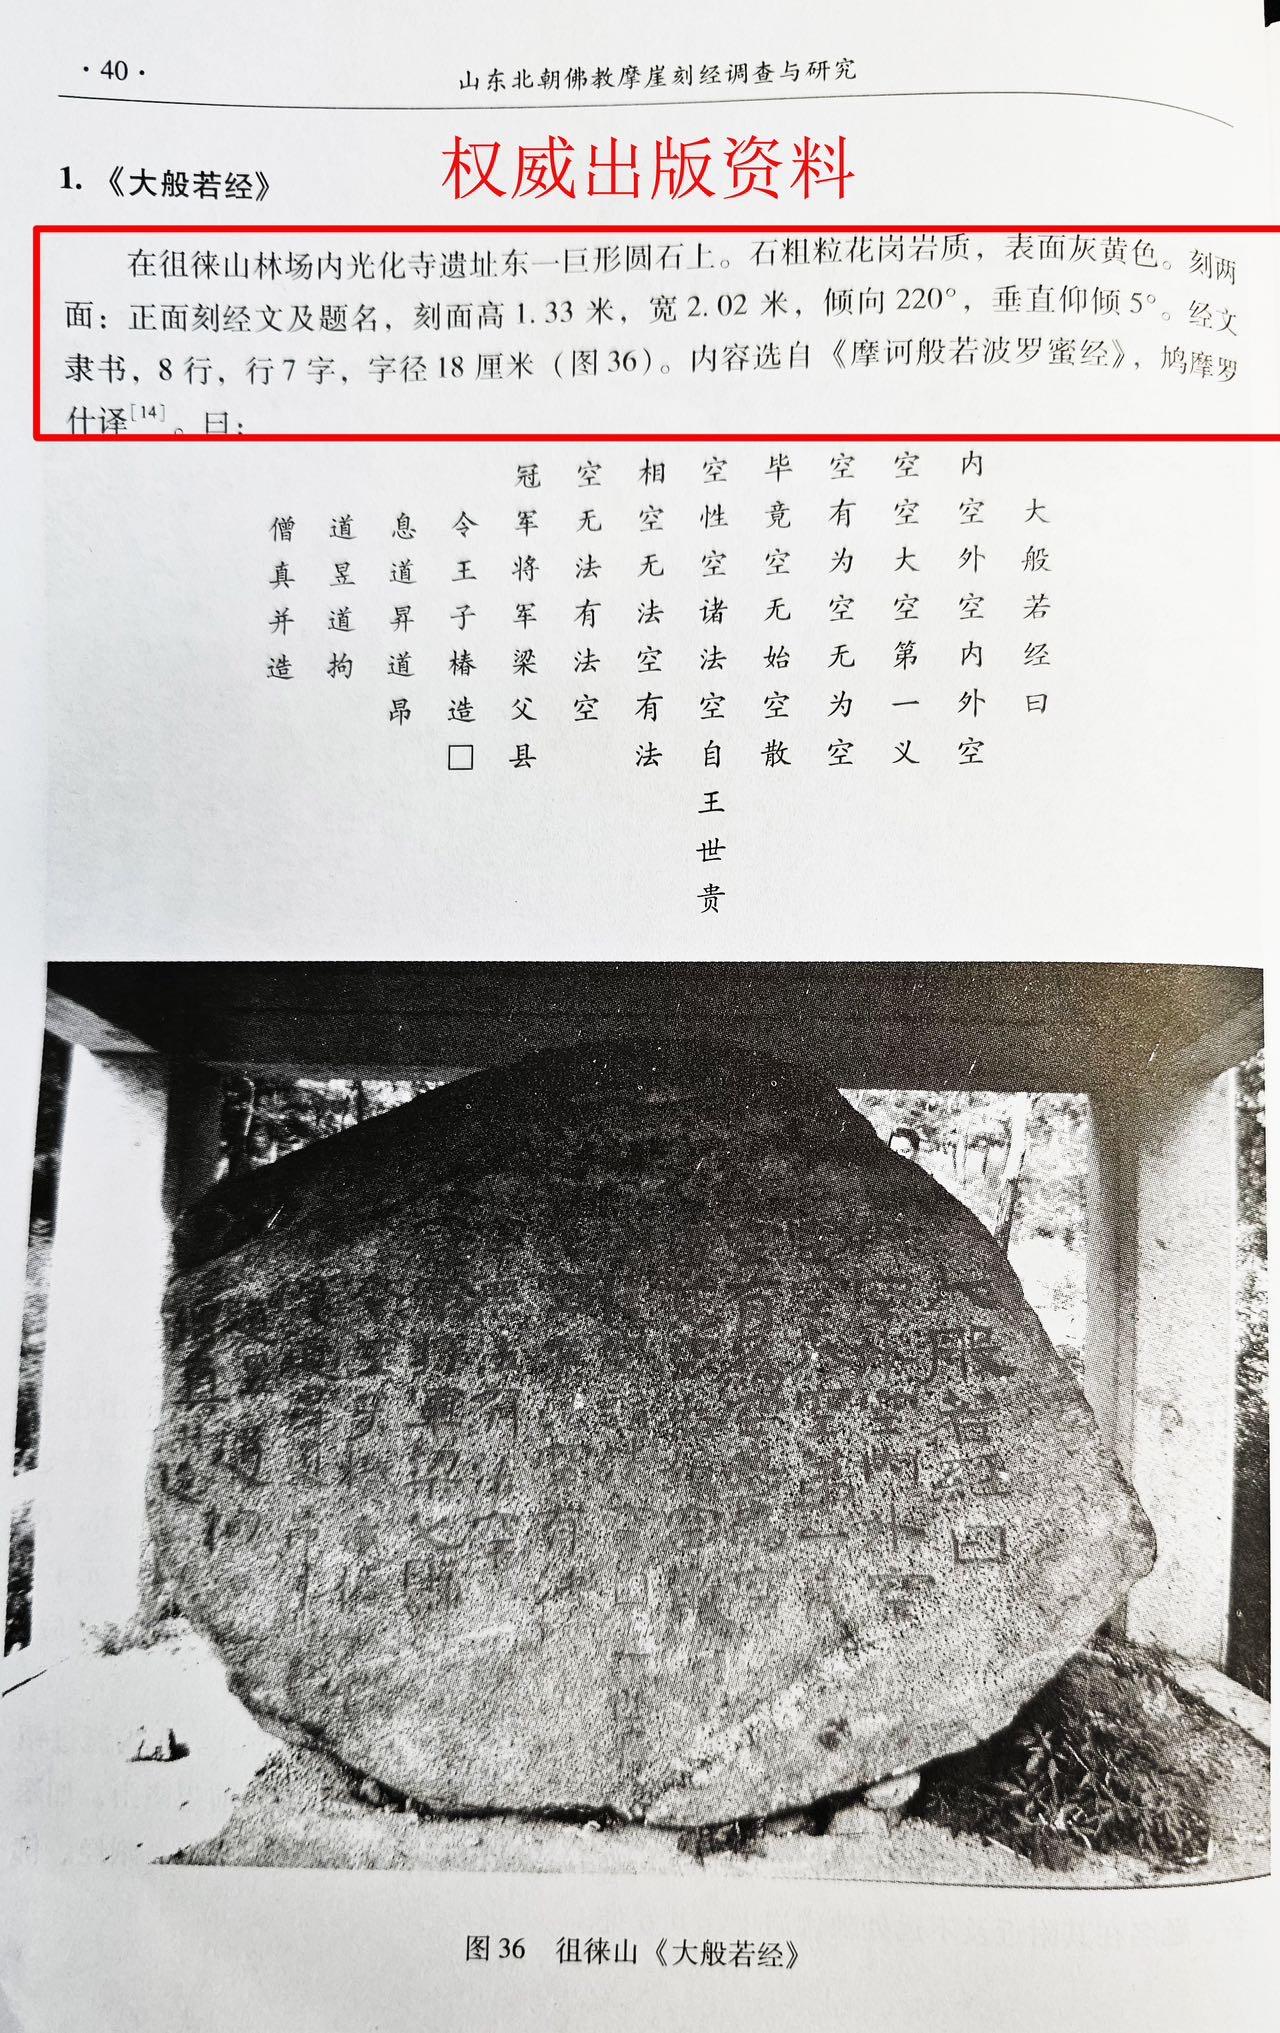 · 40 ·
山东北朝佛教摩崖刻经调查与研究
权威出版资料
1. 《大般若经》
在徂徕山林场内光化寺遗址东一巨形圆石上。石粗粒花岗岩质，表面灰黄色。刻两
面：正面刻经文及题名，刻面高 1. 33 米，宽 2. 02 米，倾向 220°，垂直仰倾 5°。经文
隶书，8 行，行 7 字，字径 18 厘米（图 36）。内容选自《摩诃般若波罗蜜经》，鸠摩罗
什译[14]。曰：
大般若经曰
内空外空内外空
空空大空第一义
空有为空无为空
毕竟空无始空散
空性空诸法空自王世贵
相空无法空有法
空无法有法空
冠军将军梁父县
令王子椿造□
息道昇道昂
道昱道拘
僧真并造
大般若经曰
图 36 徂徕山《大般若经》